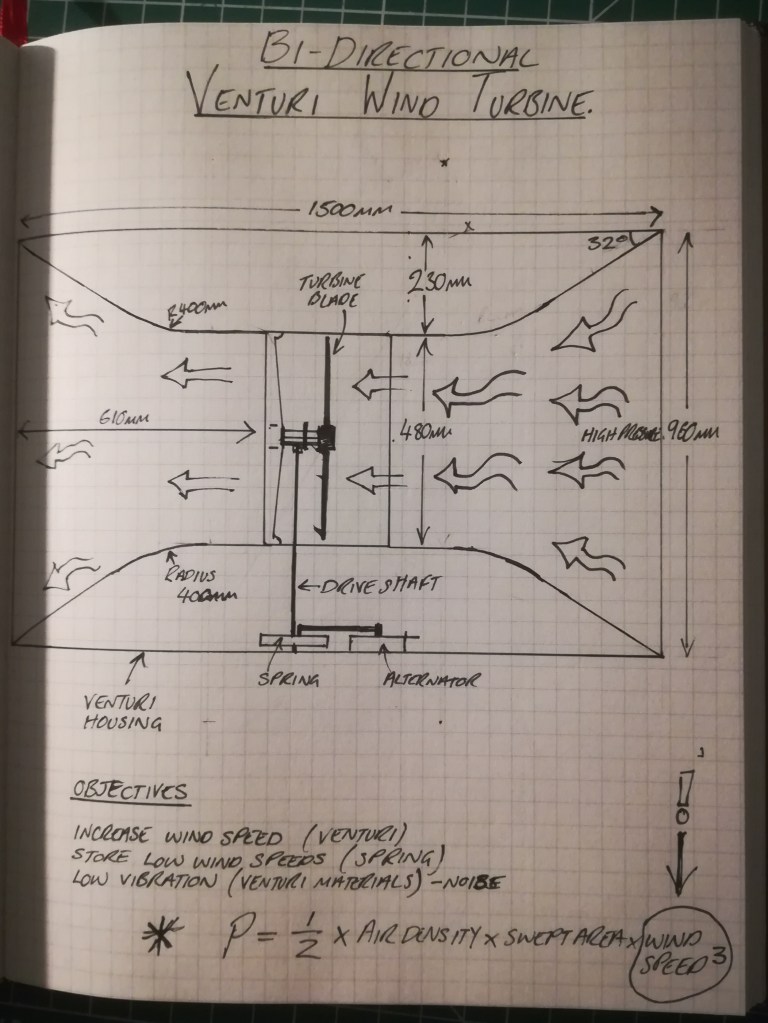 BI-DIRECTIONAL
VENTURI WIND TURBINE.
1500mm
32°
230mm
TURBINE
BLADE
R400mm
610mm
480mm
HIGH PRESSURE
960mm
RADIUS
400mm
DRIVESHAFT
SPRING
ALTERNATOR
VENTURI
HOUSING
OBJECTIVES
INCREASE WIND SPEED (VENTURI)
STORE LOW WIND SPEEDS (SPRING)
LOW VIBRATION (VENTURI MATERIALS) - NOISE
* P = 1/2 x AIR DENSITY x SWEPT AREA x WIND SPEED³